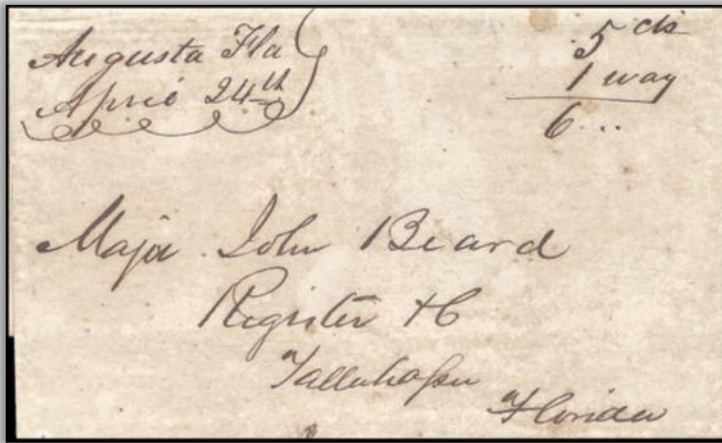 Augusta Fla
April 24th
5 cts
1 way
6 ..
Major John Beard
Register &C
Tallahassee
Florida